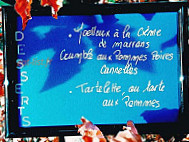 DESSERTS
. Moelleux à la Crème
de marrons
Crumble aux Pommes Poires
Cannelles
. Tartelette, ou tarte
aux Pommes